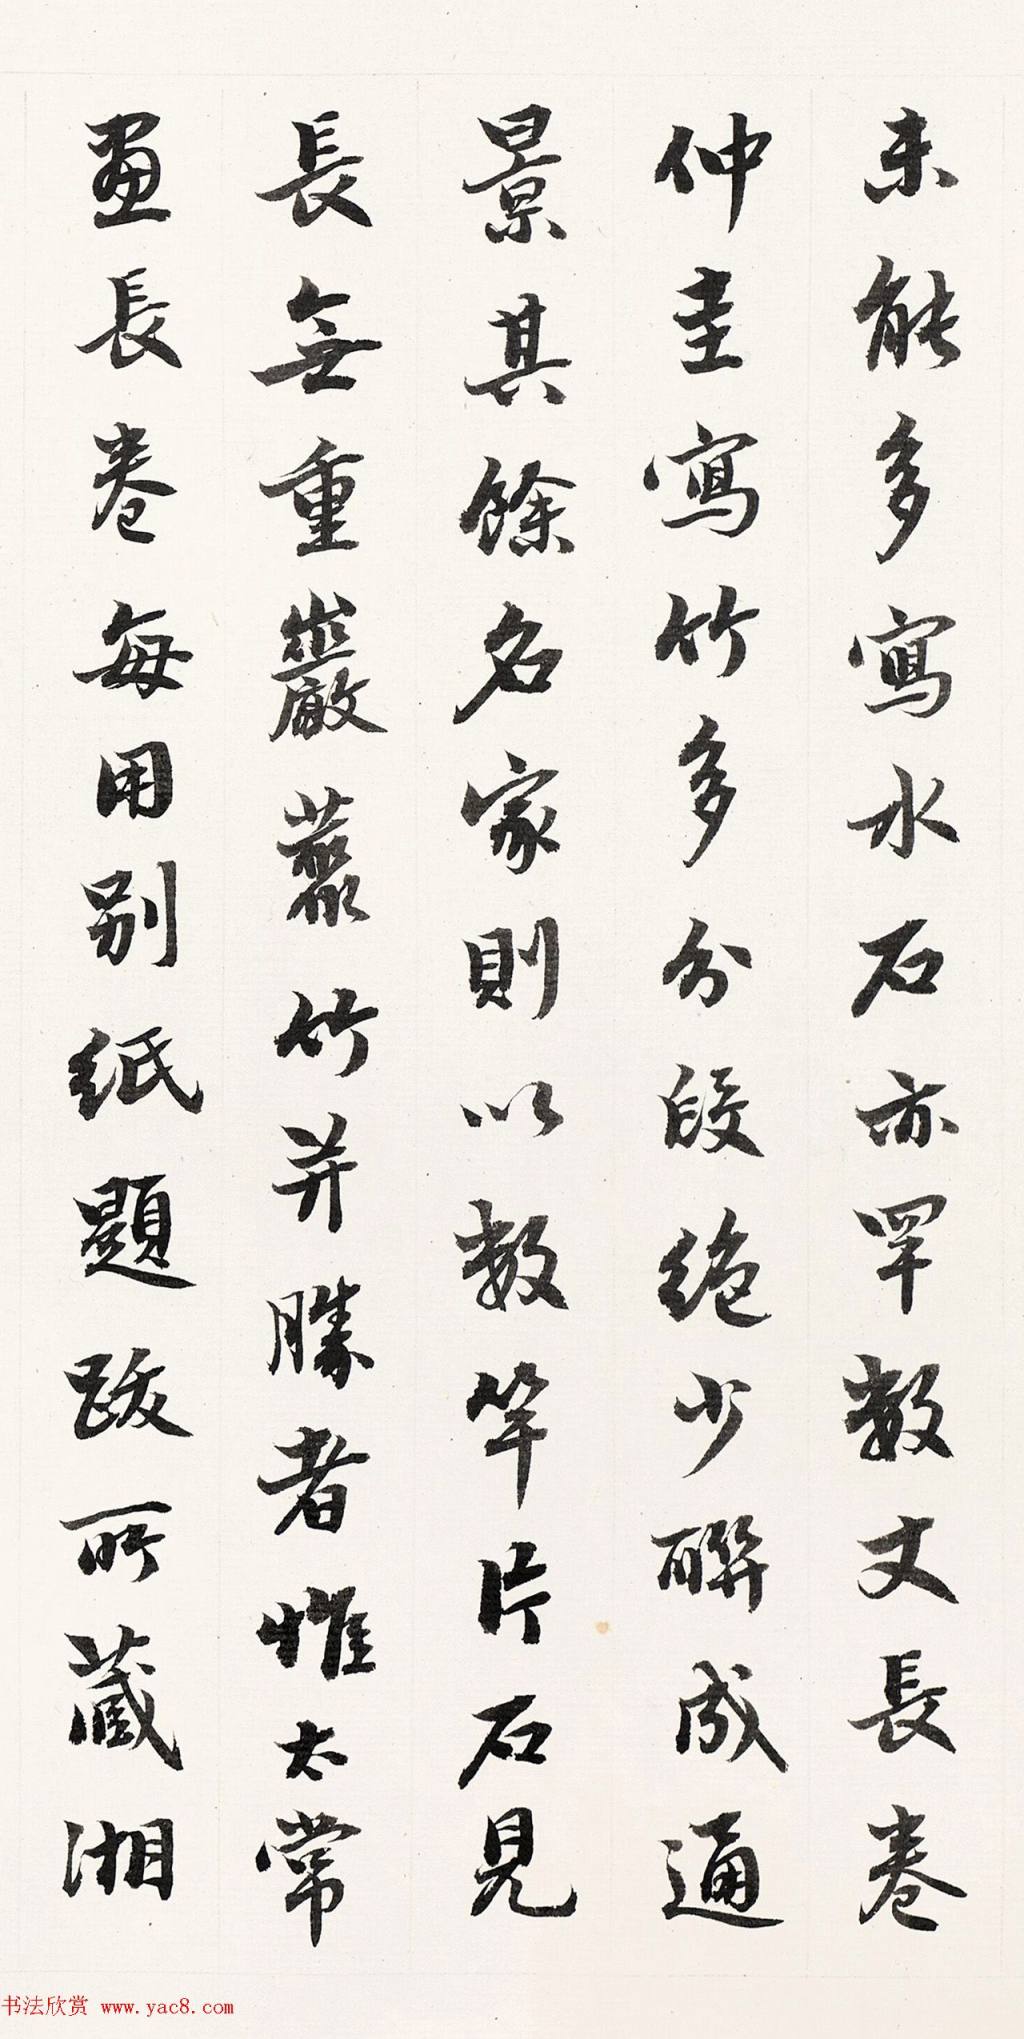 未能多寫水石亦罕數丈長卷
仲圭寫竹多分段絶少聯成通
景其餘名家則以數竿片石見
長無重巖叢竹并勝者惟太常
畫長卷每用别紙題跋所藏湘
书法欣赏 www.yac8.com